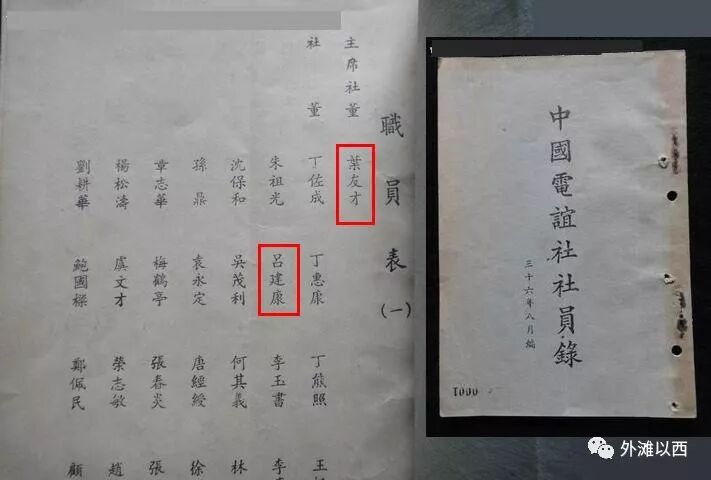 職員表(一)
主席社董 葉友才
社董 丁佐成 丁惠康 丁熊照 王
朱祖光 呂建康 李玉書 李
沈保和 吳茂利 何其義 林
孫鼎 袁永定 唐經綬 徐
章志華 梅鶴亭 張春炎 張
楊松濤 虞文才 榮志敏 趙
劉耕華 鮑國樑 鄭佩民 顧
中國電誼社社員錄
三十六年八月編
外滩以西